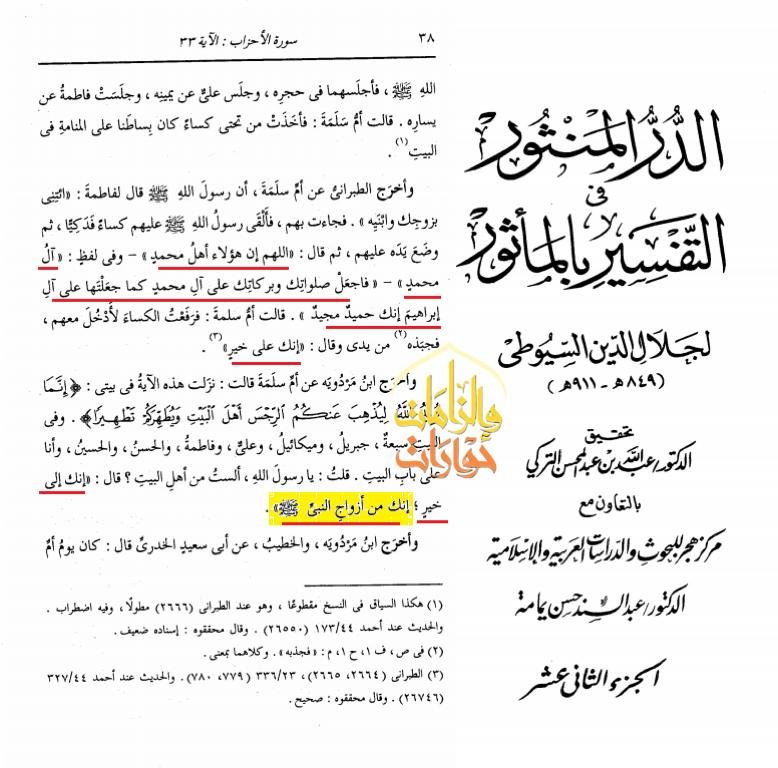 الدُّرُّ المَنْثُور
فى
التَّفْسِيرِ بِالمَأْثُور
لجَلَالِ الدِّينِ السِّيُوطِى
(٨٤٩هـ - ٩١١هـ)
تحقيق
الدكتور/عبد الله بن عبد المحسن التركى
بالتعاون مع
مركز هجر للبحوث والدراسات العربية والإسلامية
الدكتور/عبد السند حسن يمامة
الجزء الثانى عشر
٣٨
سورة الأحزاب : الآية ٣٣
اللهِ ﷺ ، فأجلَسهما فى حجرِه ، وجلَس علىٌّ عن يمينِه ، وجلَسَتْ فاطمةُ عن
يسارِه . قالت أمُّ سَلَمَةَ : فأخَذَتْ من تحتى كساءً كان بِساطَنا على المنامةِ فى
البيتِ(١) .
وأخرَج الطبرانىُّ عن أمِّ سلَمةَ ، أن رسولَ اللهِ ﷺ قال لفاطمةَ : «ائتِنِى
بزوجِك وابْنَيْه» . فجاءت بهم ، فألْقَى رسولُ اللهِ ﷺ عليهم كساءً فَدَكِيًّا ، ثم
وضَعَ يَدَه عليهم ، ثم قال : «اللهم إن هؤلاء أهلُ محمدٍ» - وفى لفظٍ : «آلُ
محمدٍ» - «فاجعَلْ صلواتِك وبركاتِك على آلِ محمدٍ كما جعَلْتَها على آلِ
إبراهيمَ إنك حميدٌ مجيدٌ» . قالت أمُّ سلمةَ : فرَفَعْتُ الكساءَ لأَدْخُلَ معهم ،
فجبَذه(٢) من يدى وقال : «إنك على خيرٍ»(٣) .
وأخرَج ابنُ مَرْدُويَه عن أمِّ سلَمةَ قالت : نزَلت هذه الآيةُ فى بيتى : ﴿إِنَّمَا
يُرِيدُ ٱللَّهُ لِيُذْهِبَ عَنكُمُ ٱلرِّجْسَ أَهْلَ ٱلْبَيْتِ وَيُطَهِّرَكُمْ تَطْهِيرًا﴾ . وفى
البيتِ سبعةٌ ، جبريلُ ، وميكائيلُ ، وعلىٌّ ، وفاطمةُ ، والحسنُ ، والحسينُ ، وأنا
على بابِ البيتِ . قلتُ : يا رسولَ اللهِ ، ألستُ من أهلِ البيتِ ؟ قال : «إنك إلى
خيرٍ ؛ إنك من أزواجِ النبىِّ ﷺ» .
وأخرَج ابنُ مَرْدُويَه ، والخطيبُ ، عن أبى سعيدٍ الخدرىِّ قال : كان يومُ أمِّ
(١) هكذا السياق فى النسخ مقطوعًا ، وهو عند الطبرانى (٢٦٦٦) مطولًا ، وفيه اضطراب .
والحديث عند أحمد ١٧٣/٤٤ (٢٦٥٥٠) . وقال محققوه : إسناده ضعيف .
(٢) فى ص ، ف ١ ، ح ١ ، م : «فجذبه» . وكلاهما بمعنى .
(٣) الطبرانى (٢٦٦٤ ، ٢٦٦٥) ، ٣٣٦/٢٣ (٧٧٩ ، ٧٨٠) . والحديث عند أحمد ٣٢٧/٤٤
(٢٦٧٤٦) . وقال محققوه : صحيح .
والزامات
حوارات